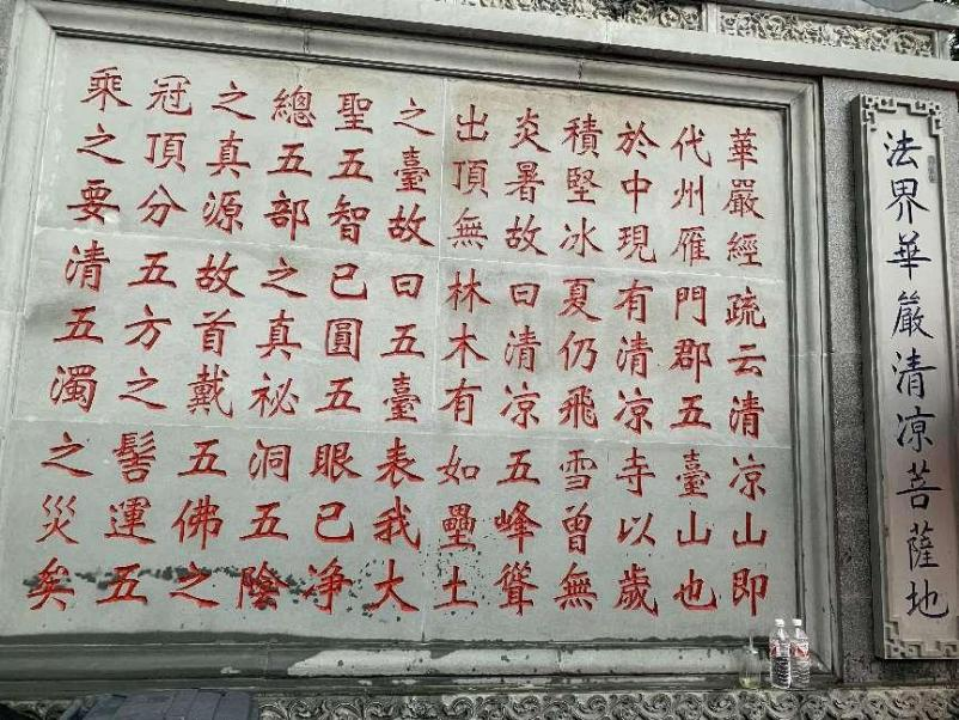 法界華嚴清涼菩薩地
華嚴經疏云清凉山即
代州雁門郡五臺山也
於中現有清凉寺以歲
積堅冰夏仍飛雪曾無
炎暑故曰清凉五峰聳
出頂無林木有如壘土
之臺故曰五臺表我大
聖五智已圓五眼已净
總五部之真祕洞五陰
之真源故首戴五佛之
冠頂分五方之髻運五
乘之要清五濁之災矣